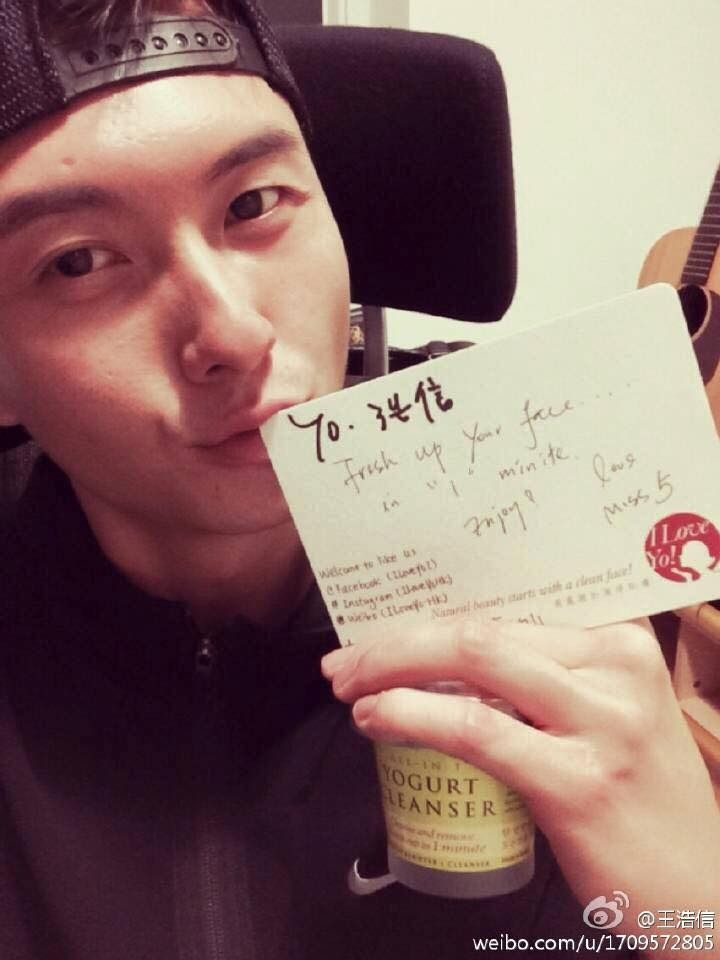 Yo. 浩信
Fresh up your face.....
in "1" minite.
Enjoy!
Love
Miss 5
I Love
Yo!
Welcome to like us
Facebook (ILoveYoI)
Instagram (iloveYoHK)
Weibo (ILoveYo-HK)
Natural beauty starts with a clean face!
ALL-IN-1
YOGURT
CLEANSER
and remove
in 1 minute
CLEANSER
@王浩信
weibo.com/u/1709572805